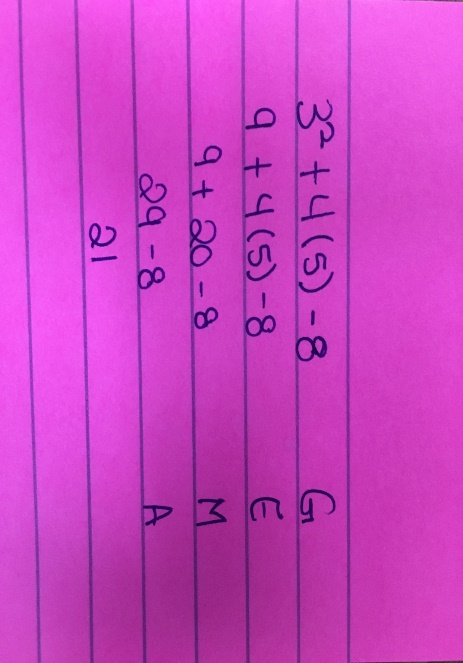 3² + 4(5) - 8 G
9 + 4(5) - 8 E
9 + 20 - 8 M
29 - 8 A
21